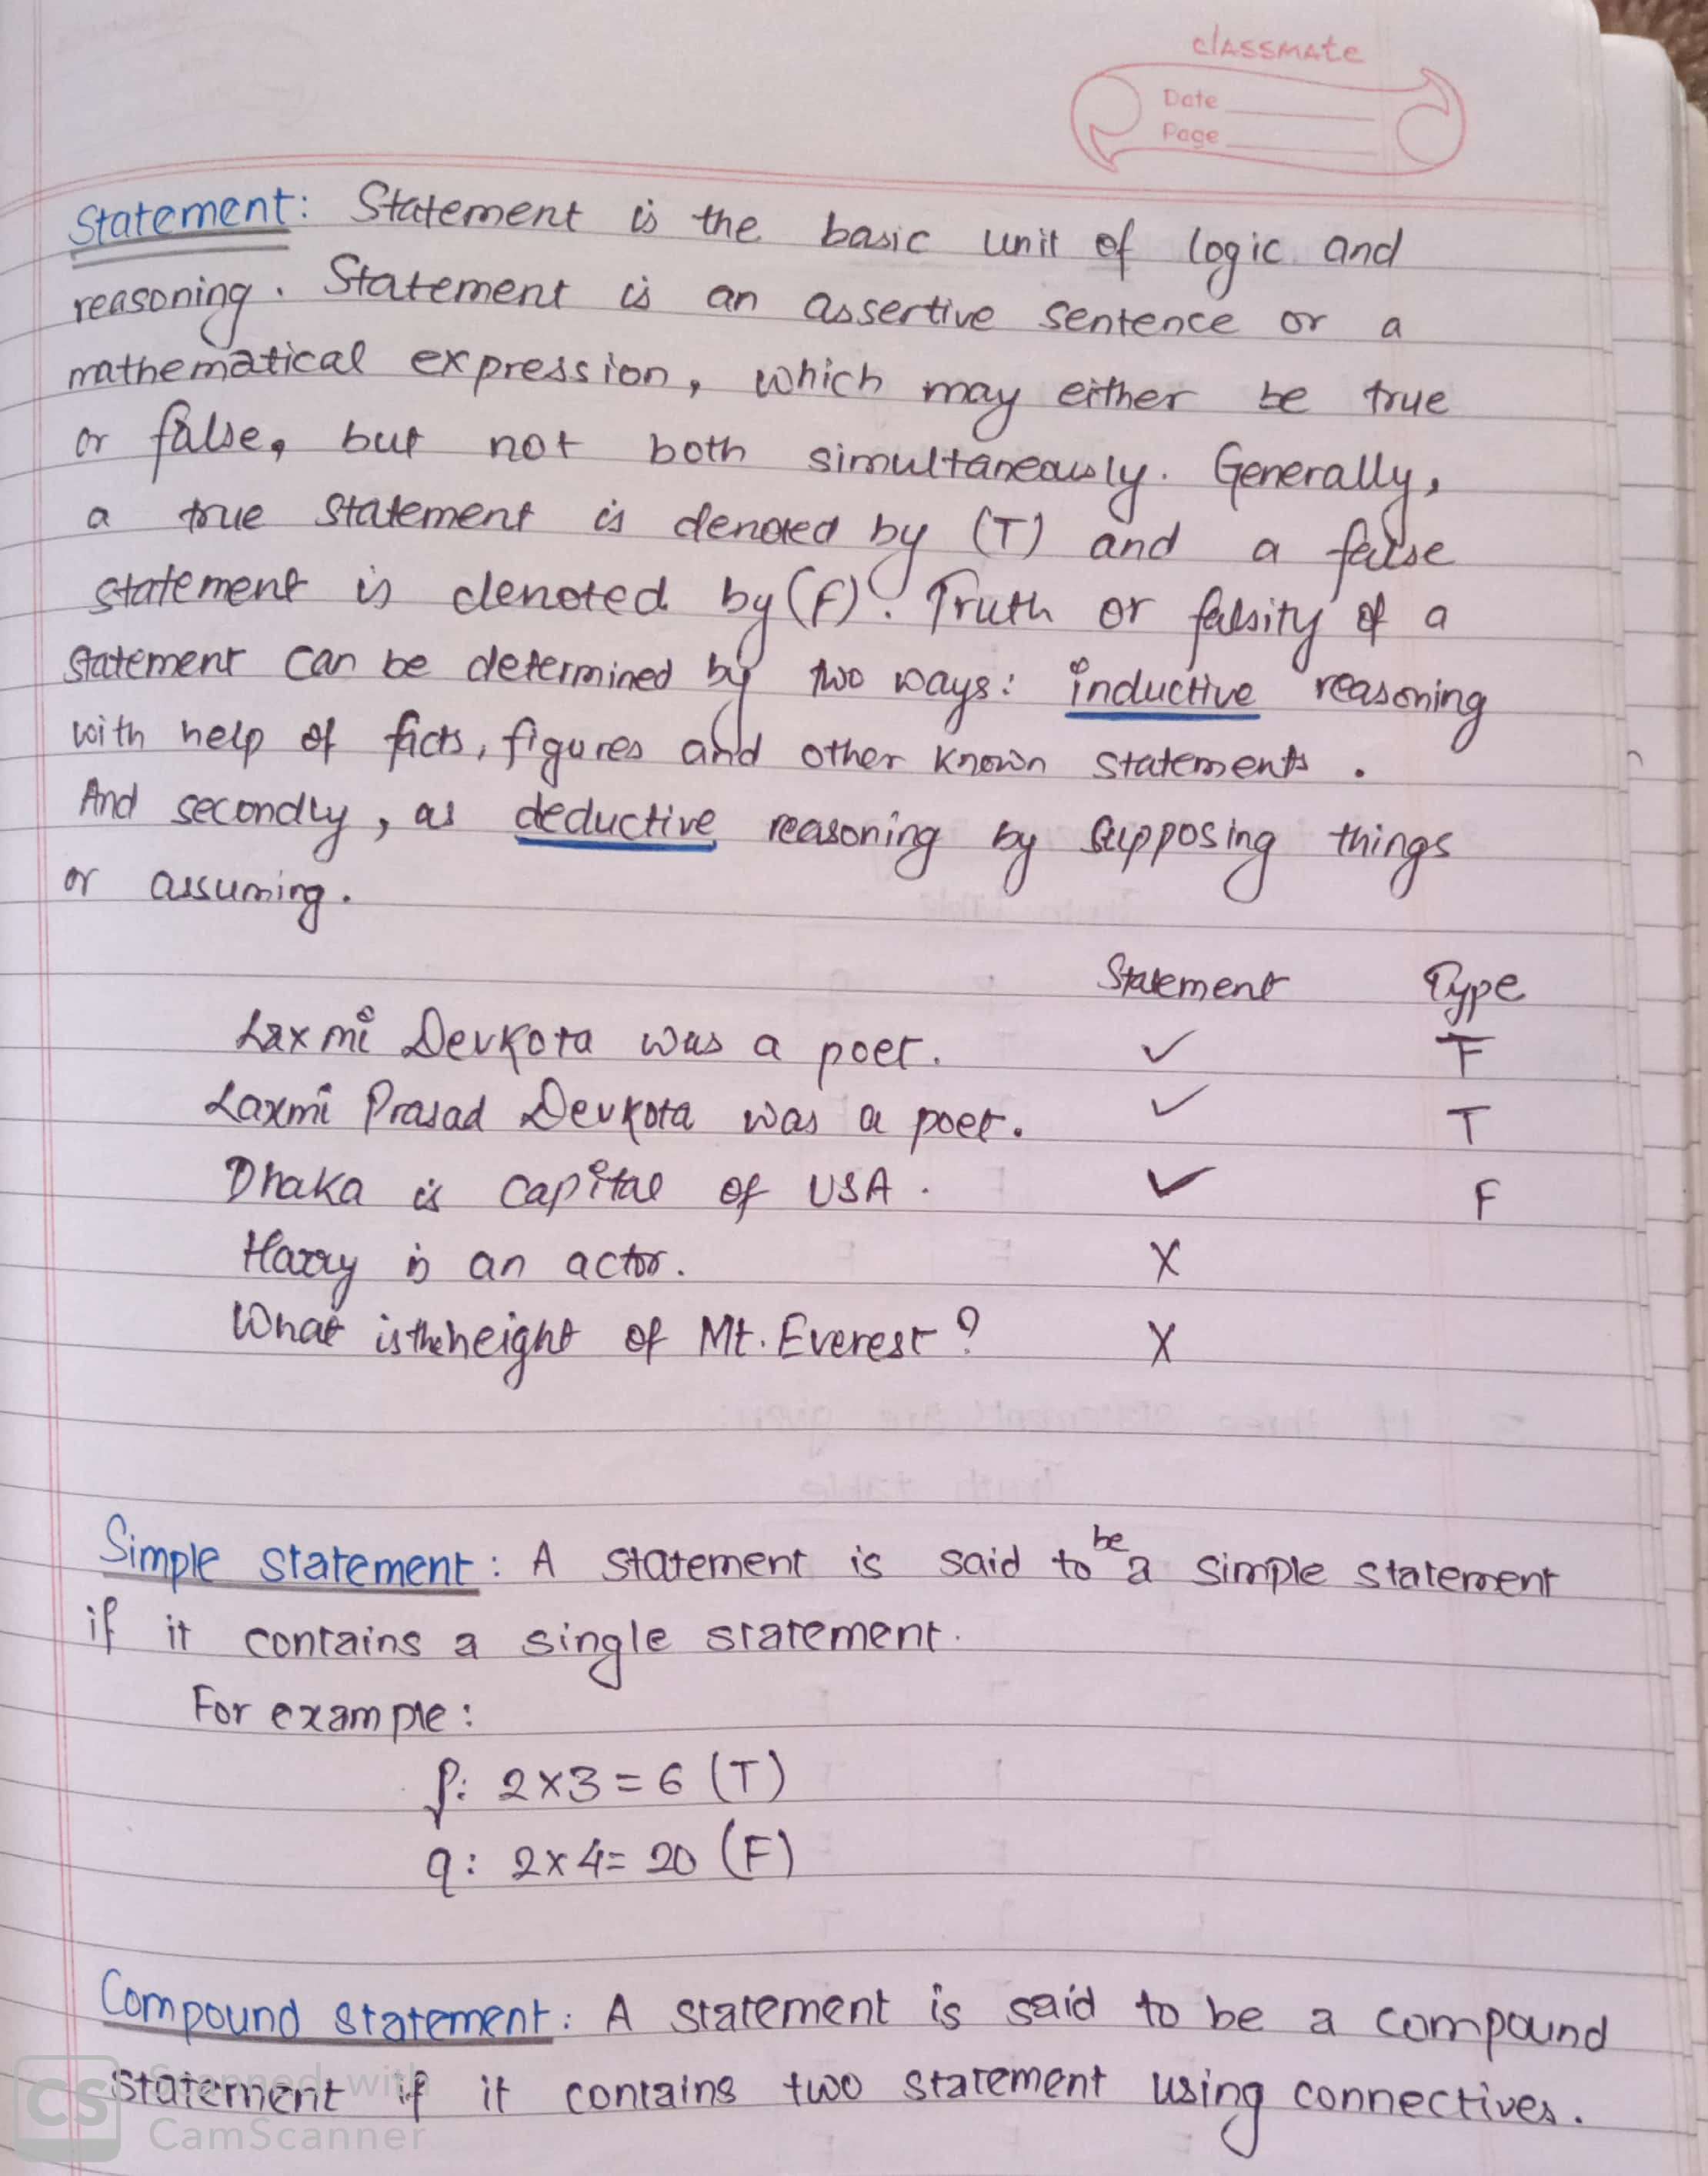 classmate
Date
Page
Statement: Statement is the basic unit of logic and
reasoning. Statement is an assertive sentence or a
mathematical expression, which may either be true
or false, but not both simultaneously. Generally,
a true statement is denoted by (T) and a false
statement is denoted by (F). Truth or falsity of a
statement can be determined by two ways: inductive reasoning
with help of facts, figures and other known statements.
And secondly, as deductive reasoning by supposing things
or assuming.
Statement Type
Laxmi Devkota was a poet. ✓ F
Laxmi Prasad Devkota was a poet. ✓ T
Dhaka is capital of USA. ✓ F
Harry is an actor. X
What is the height of Mt. Everest? X
Simple statement: A statement is said to be a simple statement
if it contains a single statement.
For example:
p: 2×3=6 (T)
q: 2×4=20 (F)
Compound statement: A statement is said to be a compound
statement if it contains two statement using connectives.
CS Scanned with
CamScanner